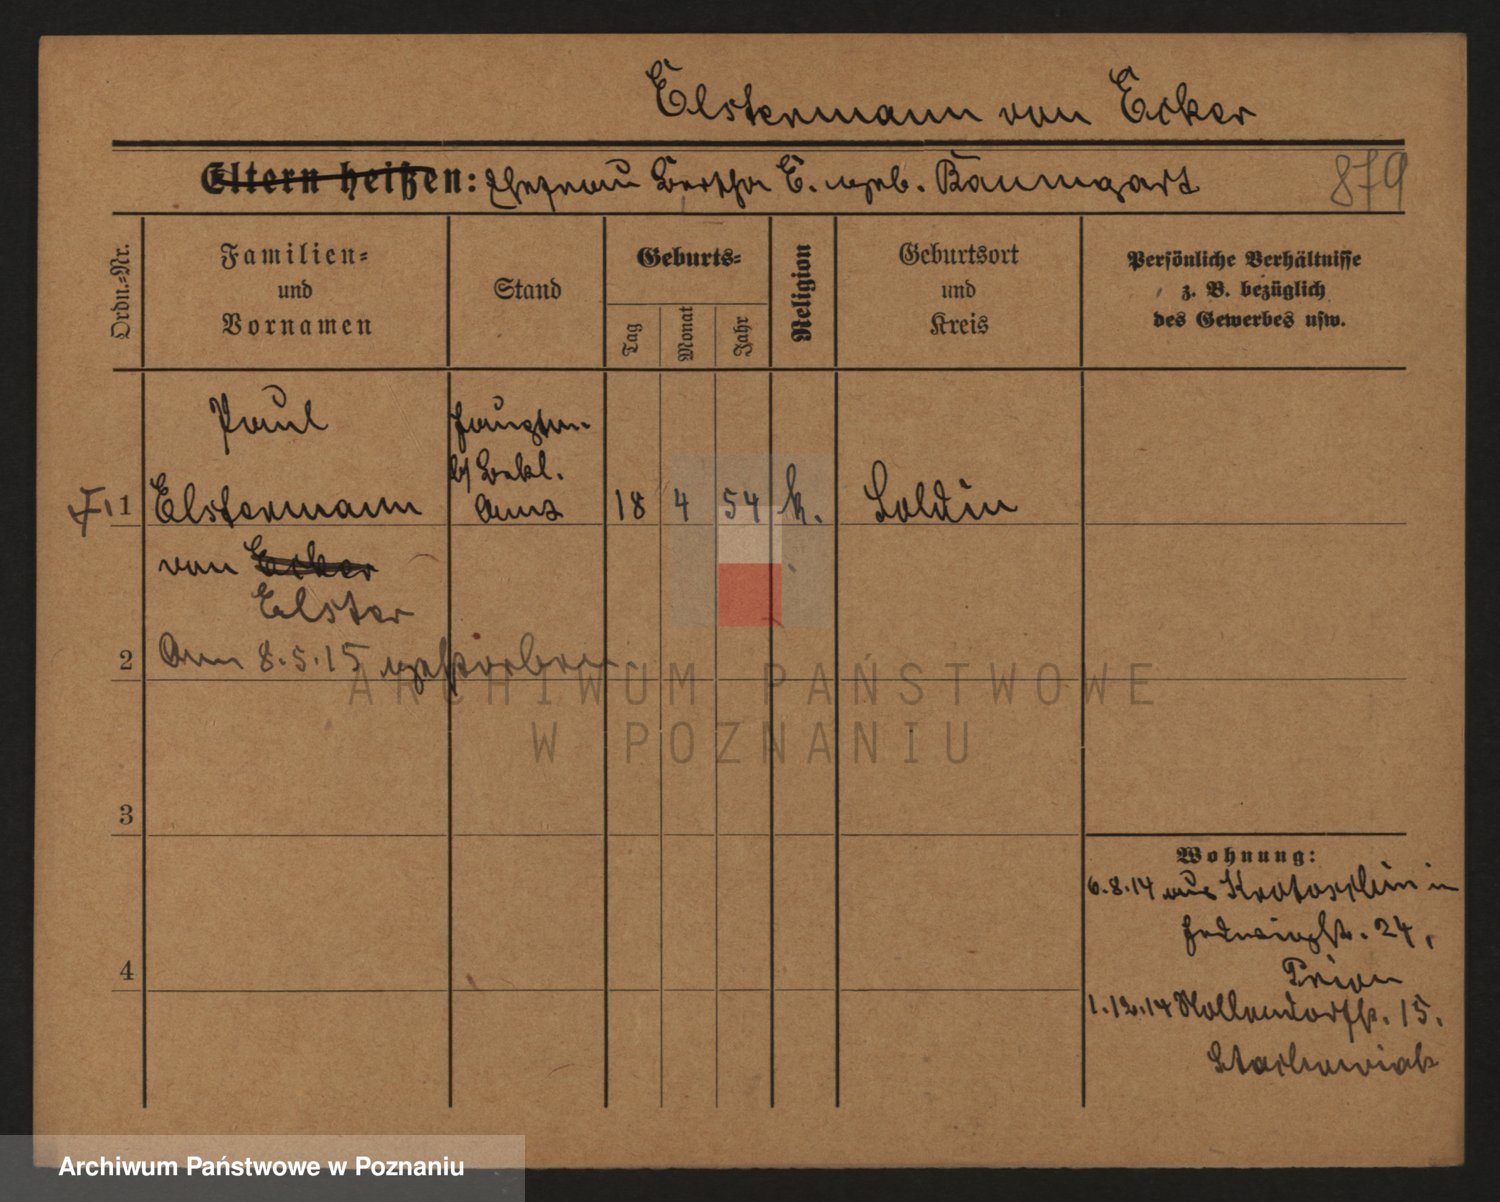 Elstermann von Ecker
Eltern heißen: Ehefrau Bertha E. geb. Baumgart
879
Ordn.-Nr.
Familien-
und
Vornamen
Stand
Geburts-
Tag
Monat
Jahr
Religion
Geburtsort
und
Kreis
Persönliche Verhältnisse
z. B. bezüglich
des Gewerbes usw.
Paul
Hauptm.
b/ Bekl.
1 Elstermann Amt 18 4 54 k. Soldin
von Ecker
Elster
2 Am 8.5.15 gestorben
ARCHIWUM PAŃSTWOWE
W POZNANIU
3
Wohnung:
6.8.14 aus Krotoschin in
Hedwigstr. 24,
4
1.12.14 Nollendorfstr. 15.
Stachowiak
Archiwum Państwowe w Poznaniu